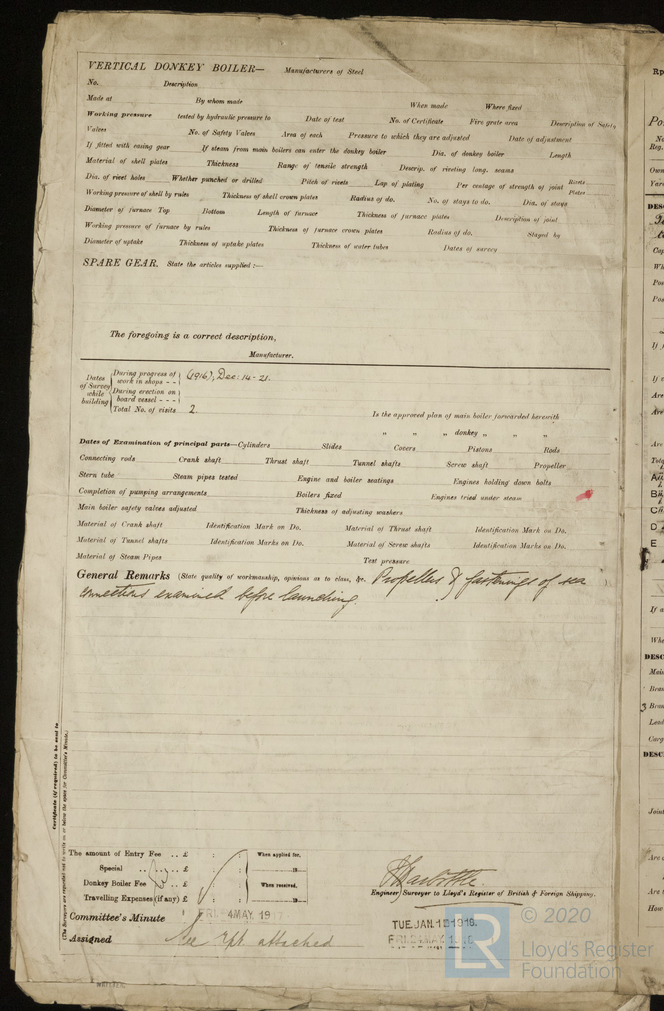 VERTICAL DONKEY BOILER— Manufacturers of Steel
No. Description
Made at By whom made When made Where fixed
Working pressure tested by hydraulic pressure to Date of test No. of Certificate Fire grate area Description of Safety
Valves No. of Safety Valves Area of each Pressure to which they are adjusted Date of adjustment
If fitted with easing gear If steam from main boilers can enter the donkey boiler Dia. of donkey boiler Length
Material of shell plates Thickness Range of tensile strength Descrip. of riveting long. seams
Dia. of rivet holes Whether punched or drilled Pitch of rivets Lap of plating Per centage of strength of joint Rivets Plates
Working pressure of shell by rules Thickness of shell crown plates Radius of do. No. of stays to do. Dia. of stays
Diameter of furnace Top Bottom Length of furnace Thickness of furnace plates Description of joint
Working pressure of furnace by rules Thickness of furnace crown plates Radius of do. Stayed by
Diameter of uptake Thickness of uptake plates Thickness of water tubes Dates of survey
SPARE GEAR. State the articles supplied :—
The foregoing is a correct description,
Manufacturer.
Dates of Survey while building
During progress of work in shops - - (1916), Dec: 14-21.
During erection on board vessel - - -
Total No. of visits 2.
Is the approved plan of main boiler forwarded herewith
„ „ „ donkey „ „ „
Dates of Examination of principal parts—Cylinders Slides Covers Pistons Rods
Connecting rods Crank shaft Thrust shaft Tunnel shafts Screw shaft Propeller
Stern tube Steam pipes tested Engine and boiler seatings Engines holding down bolts
Completion of pumping arrangements Boilers fixed Engines tried under steam
Main boiler safety valves adjusted Thickness of adjusting washers
Material of Crank shaft Identification Mark on Do. Material of Thrust shaft Identification Mark on Do.
Material of Tunnel shafts Identification Marks on Do. Material of Screw shafts Identification Marks on Do.
Material of Steam Pipes Test pressure
General Remarks (State quality of workmanship, opinions as to class, &c. Propeller & fastenings of sea
connections examined before launching.
Certificate (if required) to be sent to
(The Surveyors are requested not to write on or below the space for Committee's Minute.)
The amount of Entry Fee .. £ : : When applied for,
Special .. .. £ : : 19
Donkey Boiler Fee £ : : When received,
Travelling Expenses (if any) £ : : 19
Engineer Surveyor to Lloyd's Register of British & Foreign Shipping.
Committee's Minute FRI. 4 MAY. 19
TUE. JAN. 1918.
FRI. 24 MAY 1918
Assigned See rpt attached
LR © 2020
Lloyd's Register
Foundation